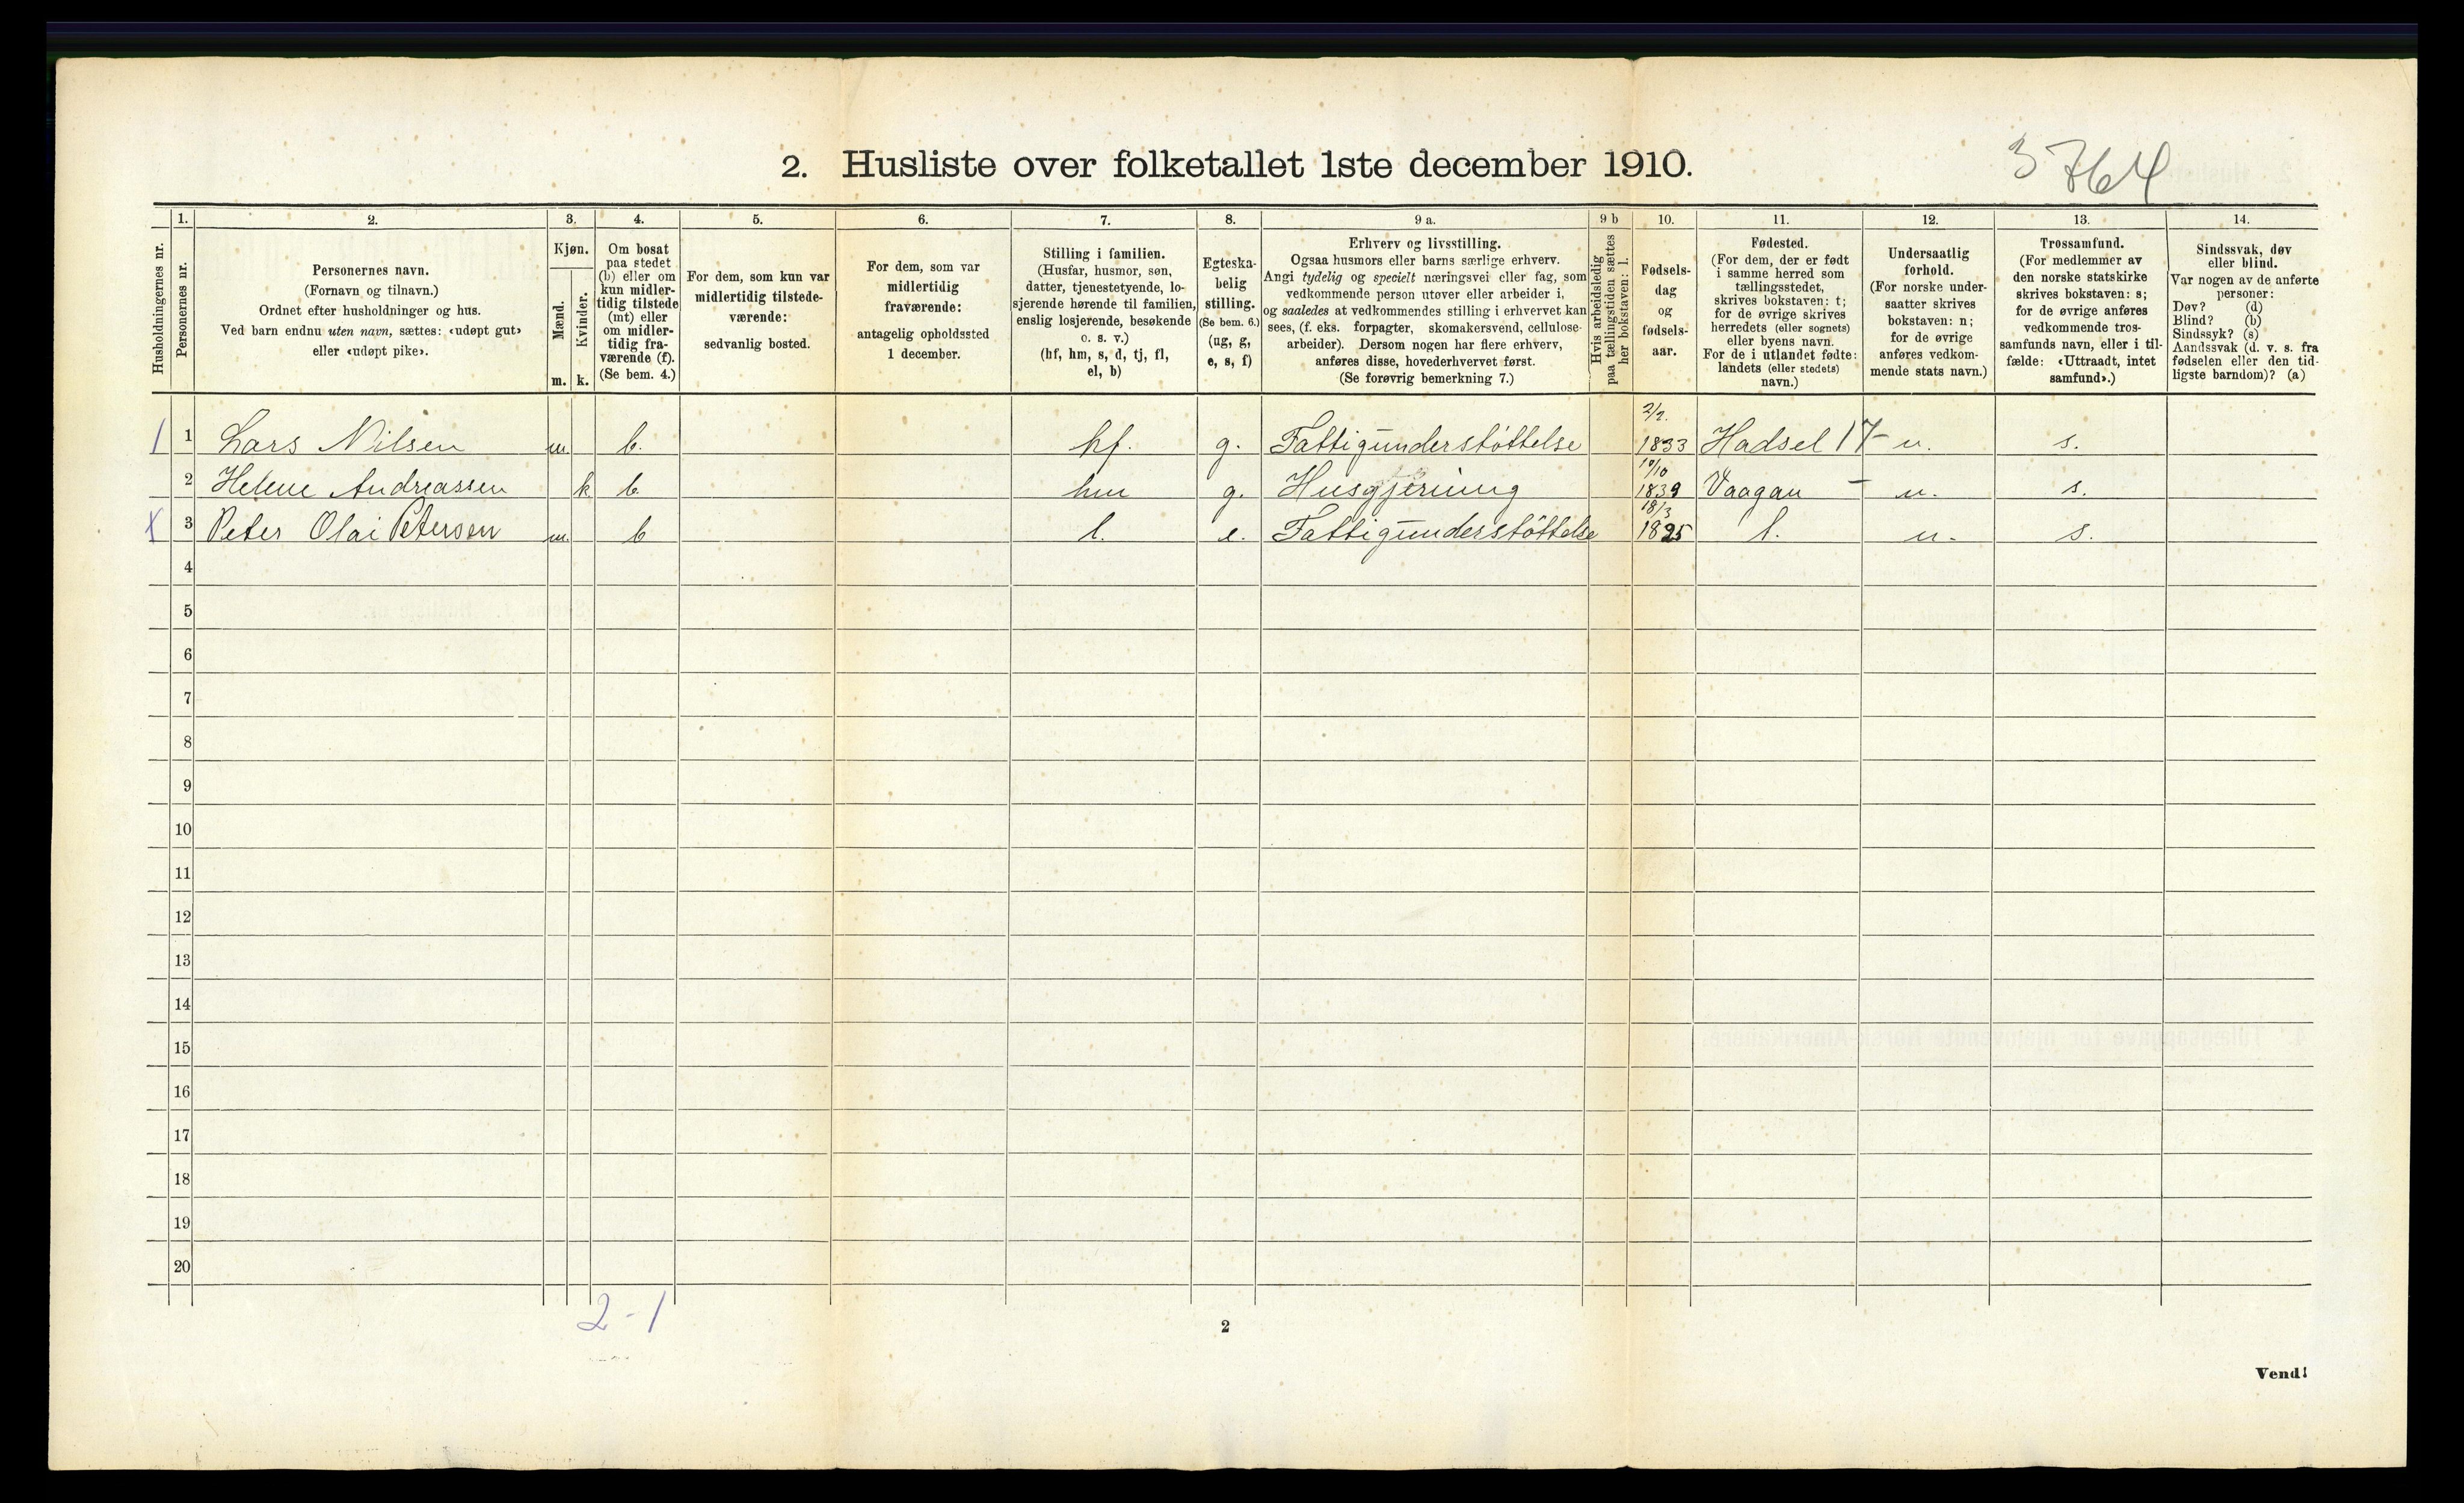 2. Husliste over folketallet 1ste december 1910.
3764
Husholdningernes nr.
1.
Personernes nr.
2.
Personernes navn.
(Fornavn og tilnavn.)
Ordnet efter husholdninger og hus.
Ved barn endnu uten navn, sættes: «udøpt gut»
eller «udøpt pike».
3.
Kjøn.
Mænd.
Kvinder.
m. k.
4.
Om bosat
paa stedet
(b) eller om
kun midler-
tidig tilstede
(mt) eller
om midler-
tidig fra-
værende (f).
(Se bem. 4.)
5.
For dem, som kun var
midlertidig tilstede-
værende:
sedvanlig bosted.
6.
For dem, som var
midlertidig
fraværende:
antagelig opholdssted
1 december.
7.
Stilling i familien.
(Husfar, husmor, søn,
datter, tjenestetyende, lo-
sjerende hørende til familien,
enslig losjerende, besøkende
o. s. v.)
(hf, hm, s, d, tj, fl,
el, b)
8.
Egteska-
belig
stilling.
(Se bem. 6.)
(ug, g,
e, s, f)
9 a.
Erhverv og livsstilling.
Ogsaa husmors eller barns særlige erhverv.
Angi tydelig og specielt næringsvei eller fag, som
vedkommende person utøver eller arbeider i,
og saaledes at vedkommendes stilling i erhvervet kan
sees, (f. eks. forpagter, skomakersvend, cellulose-
arbeider). Dersom nogen har flere erhverv,
anføres disse, hovederhvervet først.
(Se forøvrig bemerkning 7.)
9 b
Hvis arbeidsledig
paa tællingstiden sættes
her bokstaven: l.
10.
Fødsels-
dag
og
fødsels-
aar.
11.
Fødested.
(For dem, der er født
i samme herred som
tællingsstedet,
skrives bokstaven: t;
for de øvrige skrives
herredets (eller sognets)
eller byens navn.
For de i utlandet fødte:
landets (eller stedets)
navn.)
12.
Undersaatlig
forhold.
(For norske under-
saatter skrives
bokstaven: n;
for de øvrige
anføres vedkom-
mende stats navn.)
13.
Trossamfund.
(For medlemmer av
den norske statskirke
skrives bokstaven: s;
for de øvrige anføres
vedkommende tros-
samfunds navn, eller i til-
fælde: «Uttraadt, intet
samfund».)
14.
Sindssvak, døv
eller blind.
Var nogen av de anførte
personer:
Døv? (d)
Blind? (b)
Sindssyk? (s)
Aandssvak (d. v. s. fra
fødselen eller den tid-
ligste barndom)? (a)
1 1 Lars Nilsen m. b. hf. g. Fattigunderstøttelse 2/2. 1833 Hadsel 17- n. s.
2 Helene Andreassen k b. hm g. Husgjerning 10/10 1839 Vaagan - n. s.
x 3 Peter Olai Petersen m. b l. e. Fattigunderstøttelse 18/3 1825 t. n. s.
4
5
6
7
8
9
10
11
12
13
14
15
16
17
18
19
20
2-1
2
Vend!